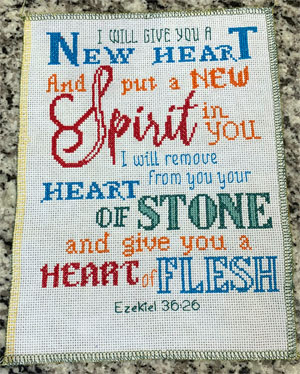 I WILL GIVE YOU A
NEW HEART
And put a NEW
Spirit in
YOU
I will remove
from you your
HEART
OF STONE
and give you a
HEART of FLESH
Ezekiel 36:26